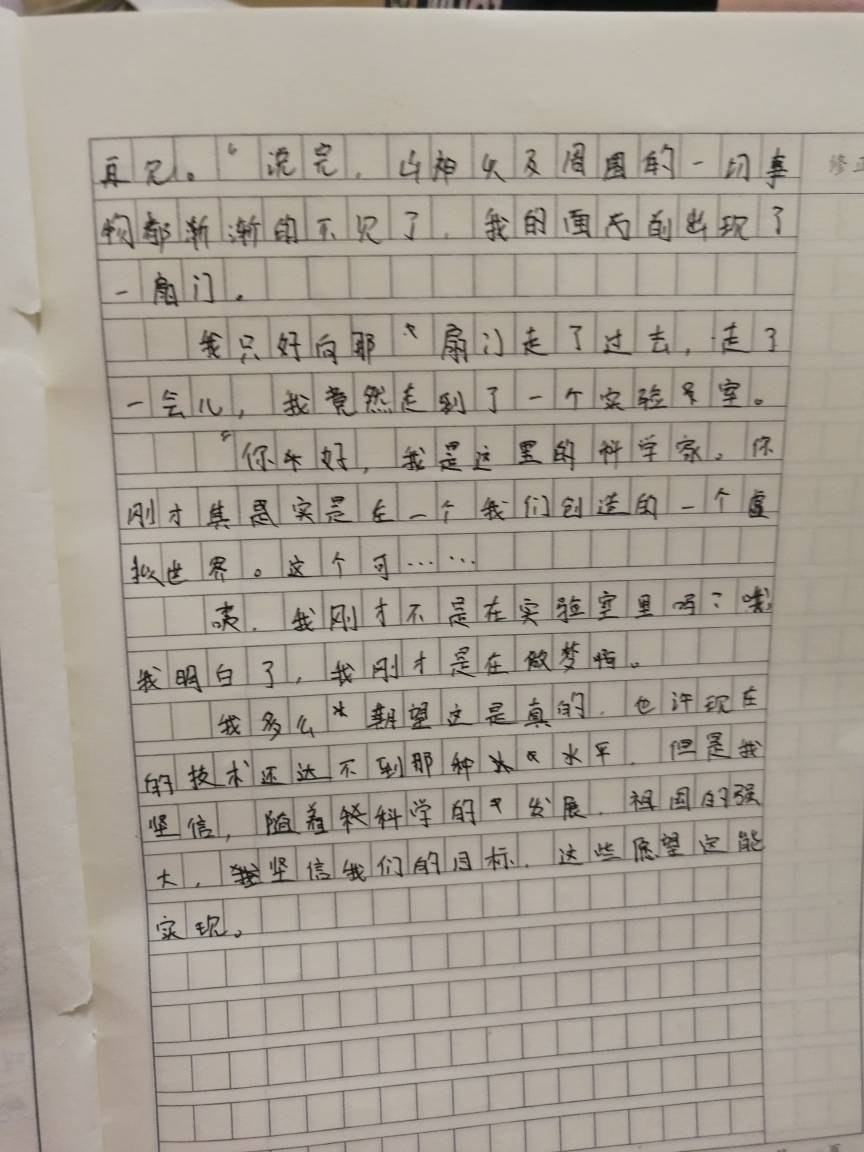 再见。“说完，山神以及周围的一切事
修正
物都渐渐的不见了，我的面前出现了
一扇门。
我只好向那扇门走了过去，走了
一会儿，我竟然走到了一个实验室。
“你好，我是这里的科学家。你
刚才其实是在一个我们创造的一个虚
拟世界。这个可……
咦，我刚才不是在实验室里吗？哦
我明白了，我刚才是在做梦啊。
我多么期望这是真的，也许现在
的技术还达不到那种水平，但是我
坚信，随着科学的发展，祖国的强
大，坚信我们的目标，这些愿望定能
实现。